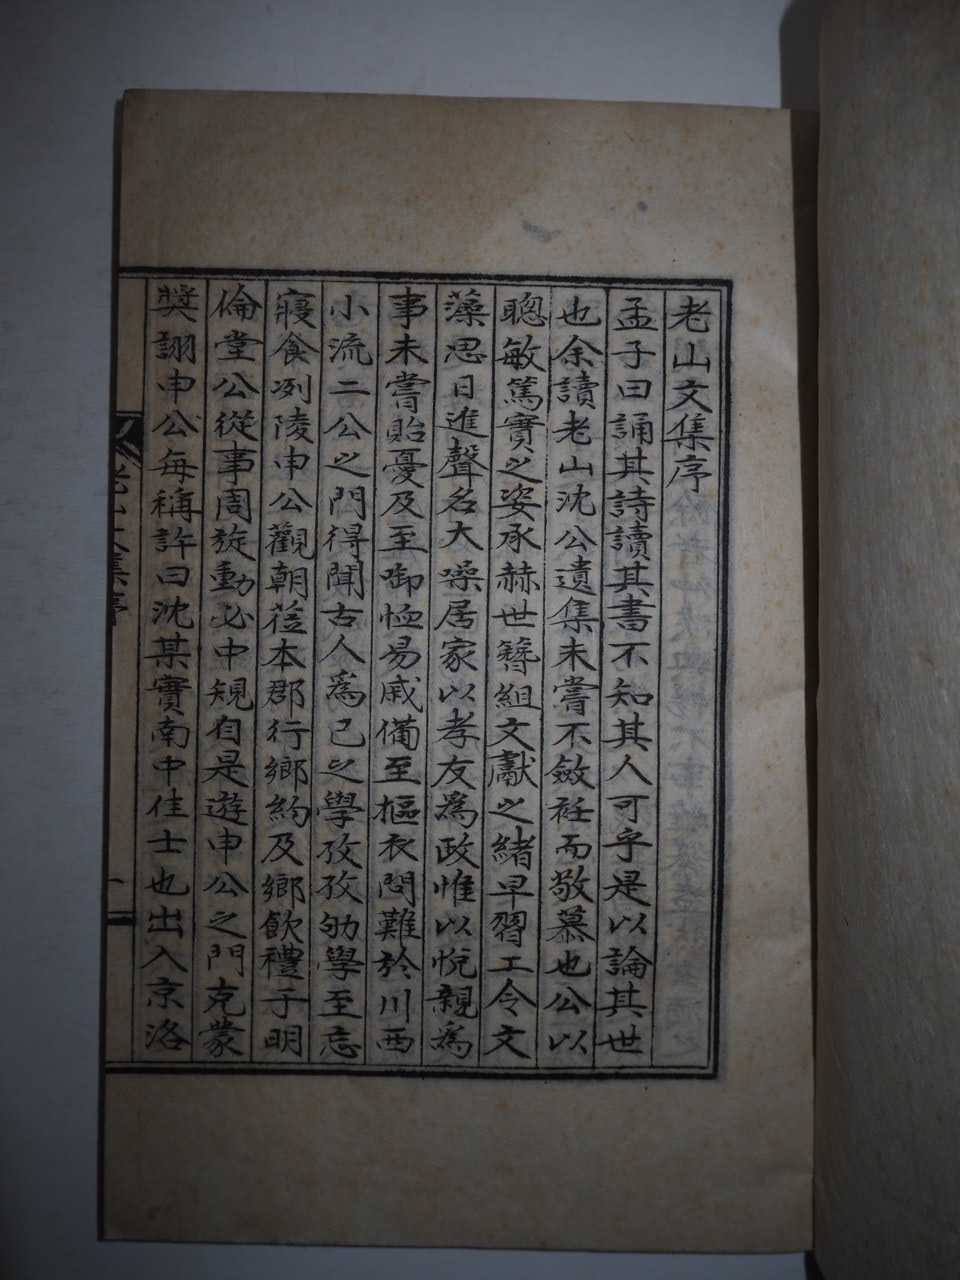 老山文集序
孟子曰誦其詩讀其書不知其人可乎是以論其世
也余讀老山沈公遺集未嘗不斂衽而敬慕也公以
聰敏篤實之姿承赫世簪組文獻之緖早習工令文
藻思日進聲名大噪居家以孝友爲政惟以悅親爲
事未嘗貽憂及至御恤易戚備至摳衣問難於川西
小流二公之門得聞古人爲己之學孜孜劬學至忘
寢食冽陵申公觀朝莅本郡行鄉約及鄉飮禮于明
倫堂公從事周旋動必中規自是遊申公之門克蒙
奬詡申公每稱許曰沈某實南中佳士也出入京洛
老山文集序
一